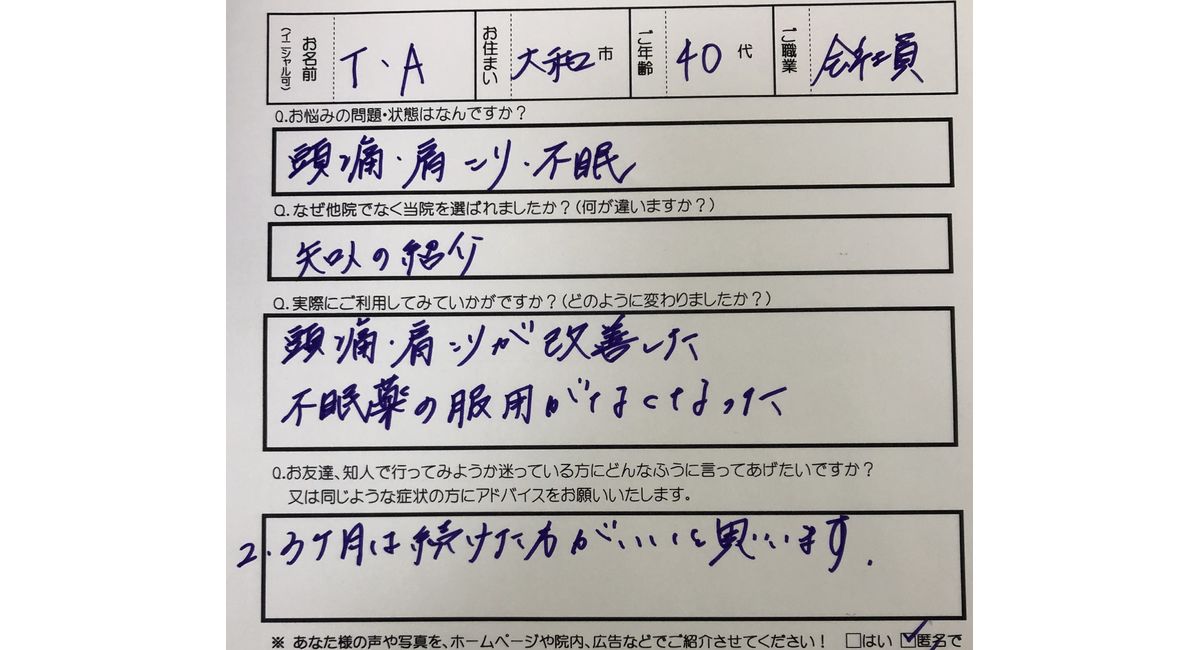 お名前(イニシャル可) T、A お住まい 大和市 ご年齢 40代 ご職業 会社員
Q.お悩みの問題・状態はなんですか?
頭痛・肩こり・不眠
Q.なぜ他院でなく当院を選ばれましたか?(何が違いますか?)
知人の紹介
Q.実際にご利用してみていかがですか?(どのように変わりましたか?)
頭痛・肩こりが改善した
不眠薬の服用がなくなった
Q.お友達、知人で行ってみようか迷っている方にどんなふうに言ってあげたいですか?
又は同じような症状の方にアドバイスをお願いいたします。
2.3ケ月は続けた方がいいと思います.
※ あなた様の声や写真を、ホームページや院内、広告などでご紹介させてください! □はい ☑匿名で